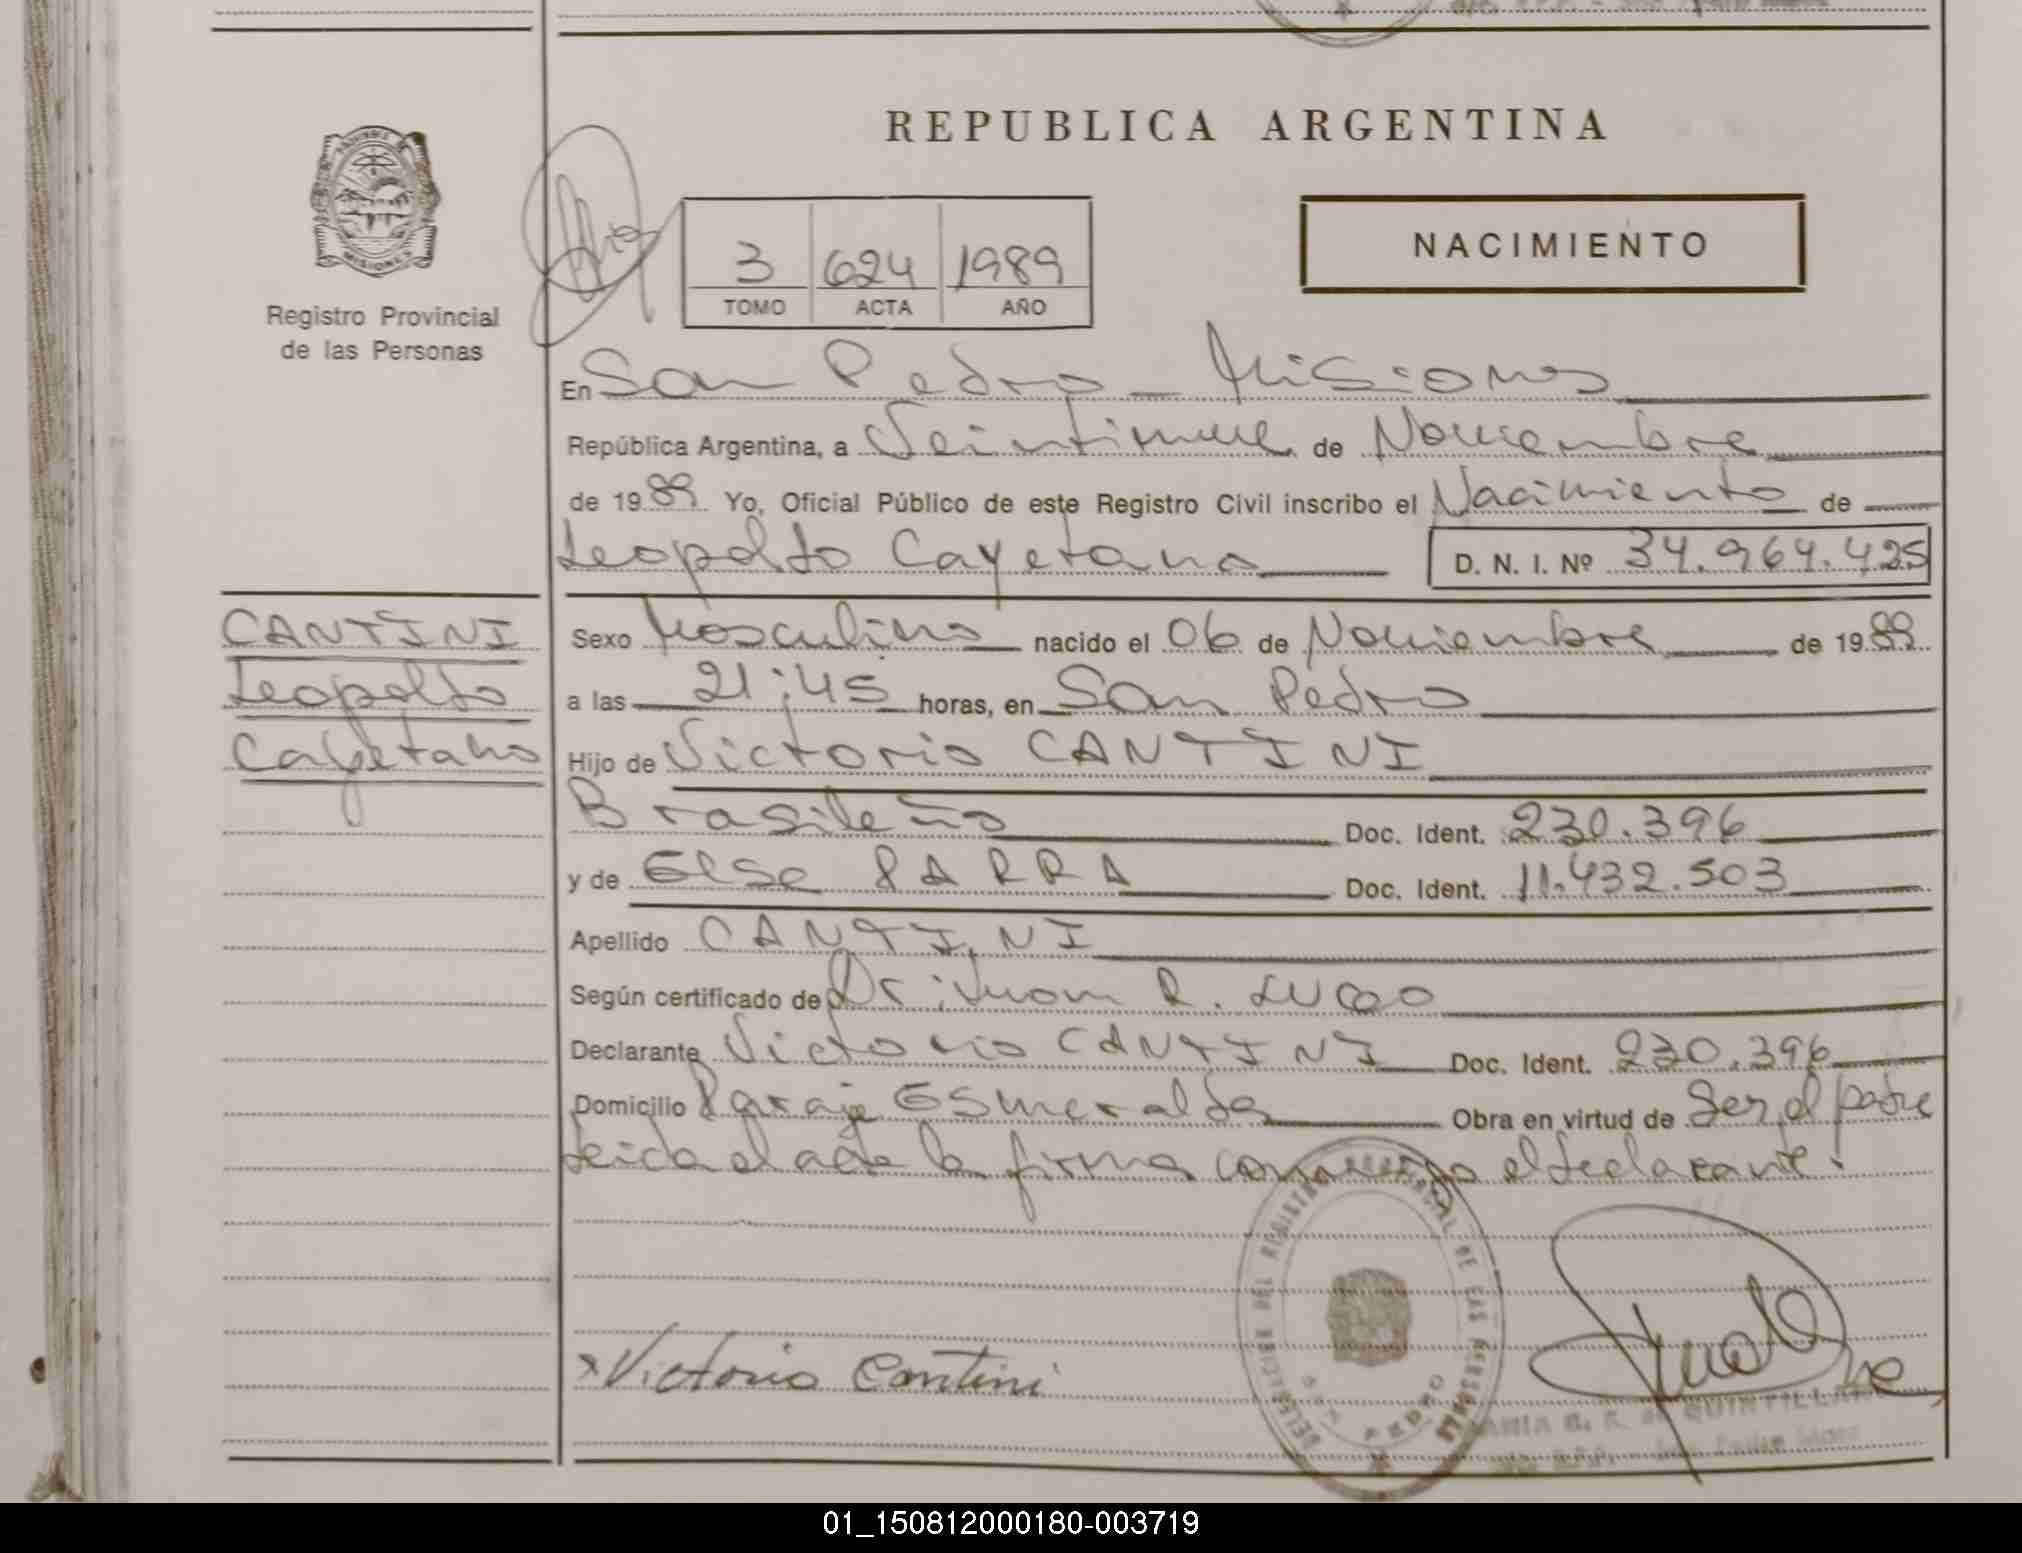 REPUBLICA ARGENTINA
PROVINCIA DE
MISIONES
Registro Provincial
de las Personas
NACIMIENTO
3 624 1989
TOMO ACTA AÑO
En San Pedro - Misiones
República Argentina, a Veintinueve de Noviembre
de 1989 Yo, Oficial Público de este Registro Civil inscribo el Nacimiento de
Leopoldo Cayetano D. N. I. Nº 34.964.425
CANTINI
Leopoldo
Cayetano
Sexo Masculino nacido el 06 de Noviembre de 1989
a las 21:45 horas, en San Pedro
Hijo de Victorio CANTINI
Brasileño Doc. Ident. 230.396
y de Elsa PARRA Doc. Ident. 11.432.503
Apellido CANTINI
Según certificado de Dr. Juan R. Lugo
Declarante Victorio CANTINI Doc. Ident. 230.396
Domicilio Paraje Esmeralda Obra en virtud de Ser el padre
Leida el acta la firma conmigo el declarante.
DELEGACION DEL REGISTRO PROVINCIAL DE LAS PERSONAS
SAN PEDRO
x Victorio Cantini
MARIA R. DE QUINTILLAN
01_150812000180-003719